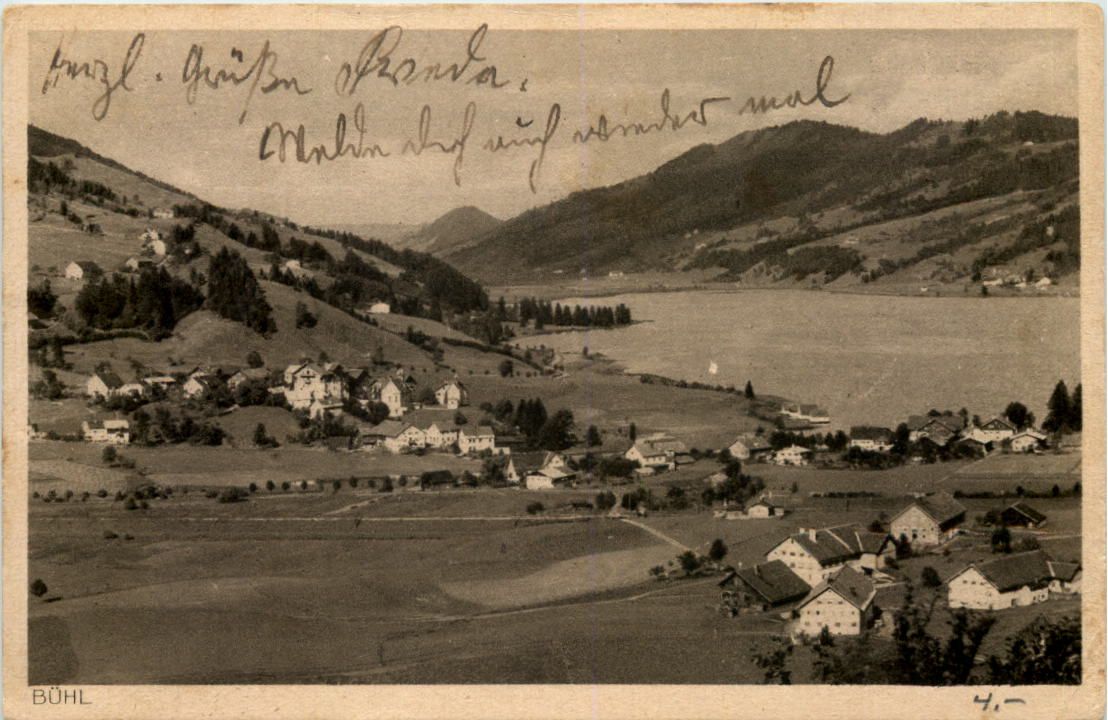 Herzl. Grüße Frieda.
Melde dich auch wieder mal
BÜHL
4,-